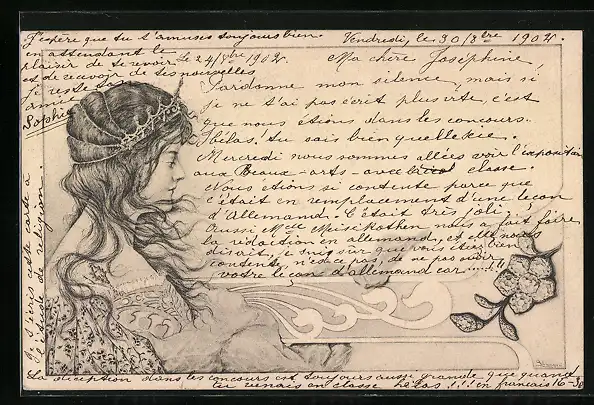 Vendredi, le 30/8bre 1902.
Ma chère Joséphine,
Pardonne mon silence, mais si
je ne t'ai pas écrit plus vite, c'est
que nous étions dans les concours.
hélas! tu sais bien quelle vie.
Mercredi nous sommes allées voir l'exposition
aux Beaux-arts - avec la classe.
Nous étions si contente parce que
c'était en remplacement d'une leçon
d'Allemand. C'était très joli.
Aussi Melle nous a fait faire
la rédaction en allemand, et elle nous
disait, je suis sûr que vous étiez bien
contente, n'est-ce pas, de ne pas avoir
votre leçon d'allemand car....!!
La déception dans les concours est toujours aussi grande que quand
tu venais en classe hélas!!! en français 16-30
J'écris cette carte à
l'étude de religion.
J'espère que tu t'amuses toujours bien
en attendant le
plaisir de te revoir Le 24/8bre 1902.
et de recevoir de tes nouvelles
je reste ton
amie
Sophie